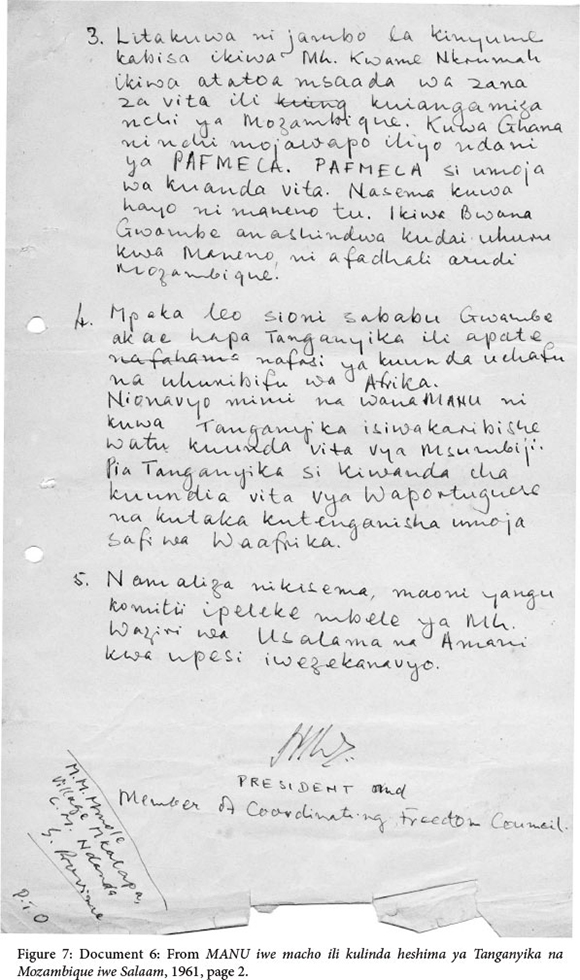 3. Litakuwa ni jambo la kinyume
kabisa ikiwa Mh. Kwame Nkrumah
ikiwa atatoa msaada wa zana
za vita ili kuing kuiangamiza
nchi ya Mozambique. Kuwa Ghana
ni nchi mojawapo iliyo ndani
ya PAFMECA. PAFMECA si umoja
wa kuanda vita. Nasema kuwa
hayo ni maneno tu. Ikiwa Bwana
Gwambe anashindwa kudai uhuru
kwa Maneno, ni afadhali arudi
Mozambique.
4. Mpaka leo sioni sababu Gwambe
akae hapa Tanganyika ili apate
nafahama nafasi ya kuunda uchafu
na uharibifu wa Afrika.
Nionavyo mimi na wanaMANU ni
kuwa Tanganyika isiwakaribishe
watu kuunda vita vya Msumbiji.
Pia Tanganyika si kiwanda cha
kuundia vita vya Waportuguese
na kutaka kutenganisha umoja
safi wa Waafrika.
5. Namaliza nikisema, maoni yangu
komitii ipeleke mbele ya Mh.
Waziri wa Usalama na Amani
kwa upesi iwezekanavyo.
PRESIDENT and
Member of Coordinating Freedom Council.
M.M. Mmole
Village Mkalapa,
C.M. Ndanda
S. Province
P.T.O
Figure 7: Document 6: From MANU iwe macho ili kulinda heshima ya Tanganyika na
Mozambique iwe Salaam, 1961, page 2.